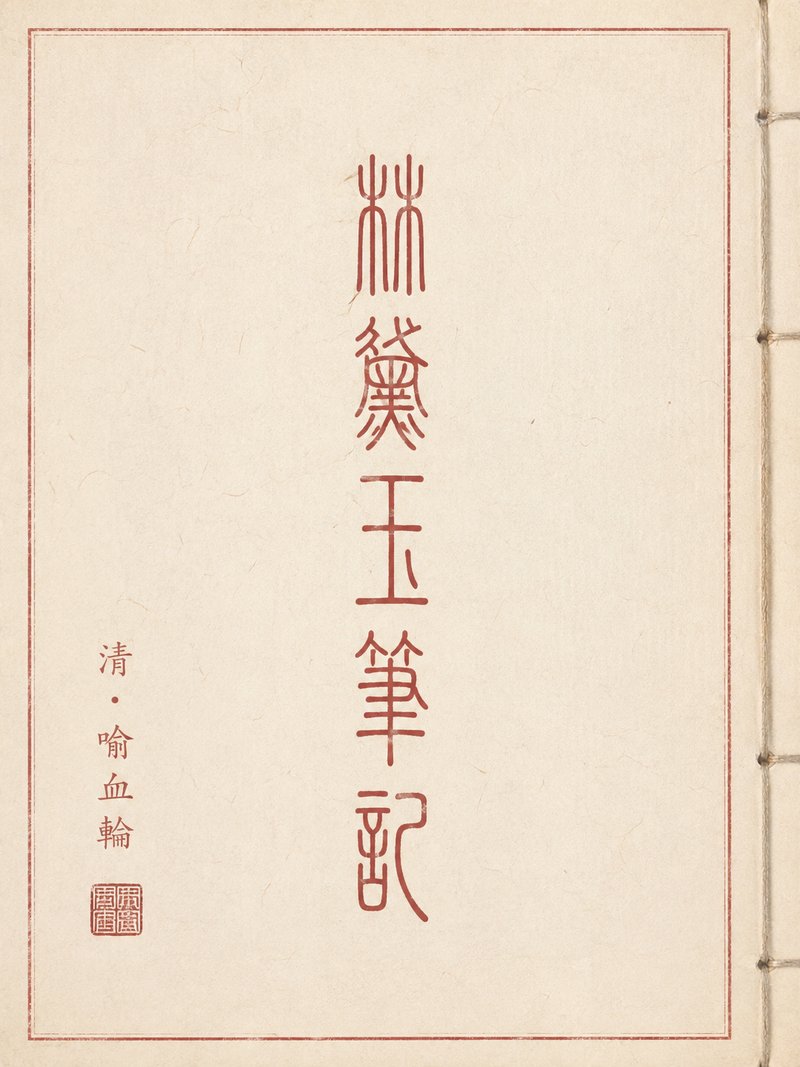 林黛玉筆記
清・喻血輪